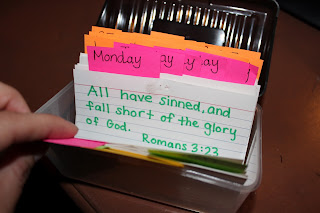 Monday
ay
ay
y
All have sinned, and
fall short of the glory
of God.
Romans 3:23